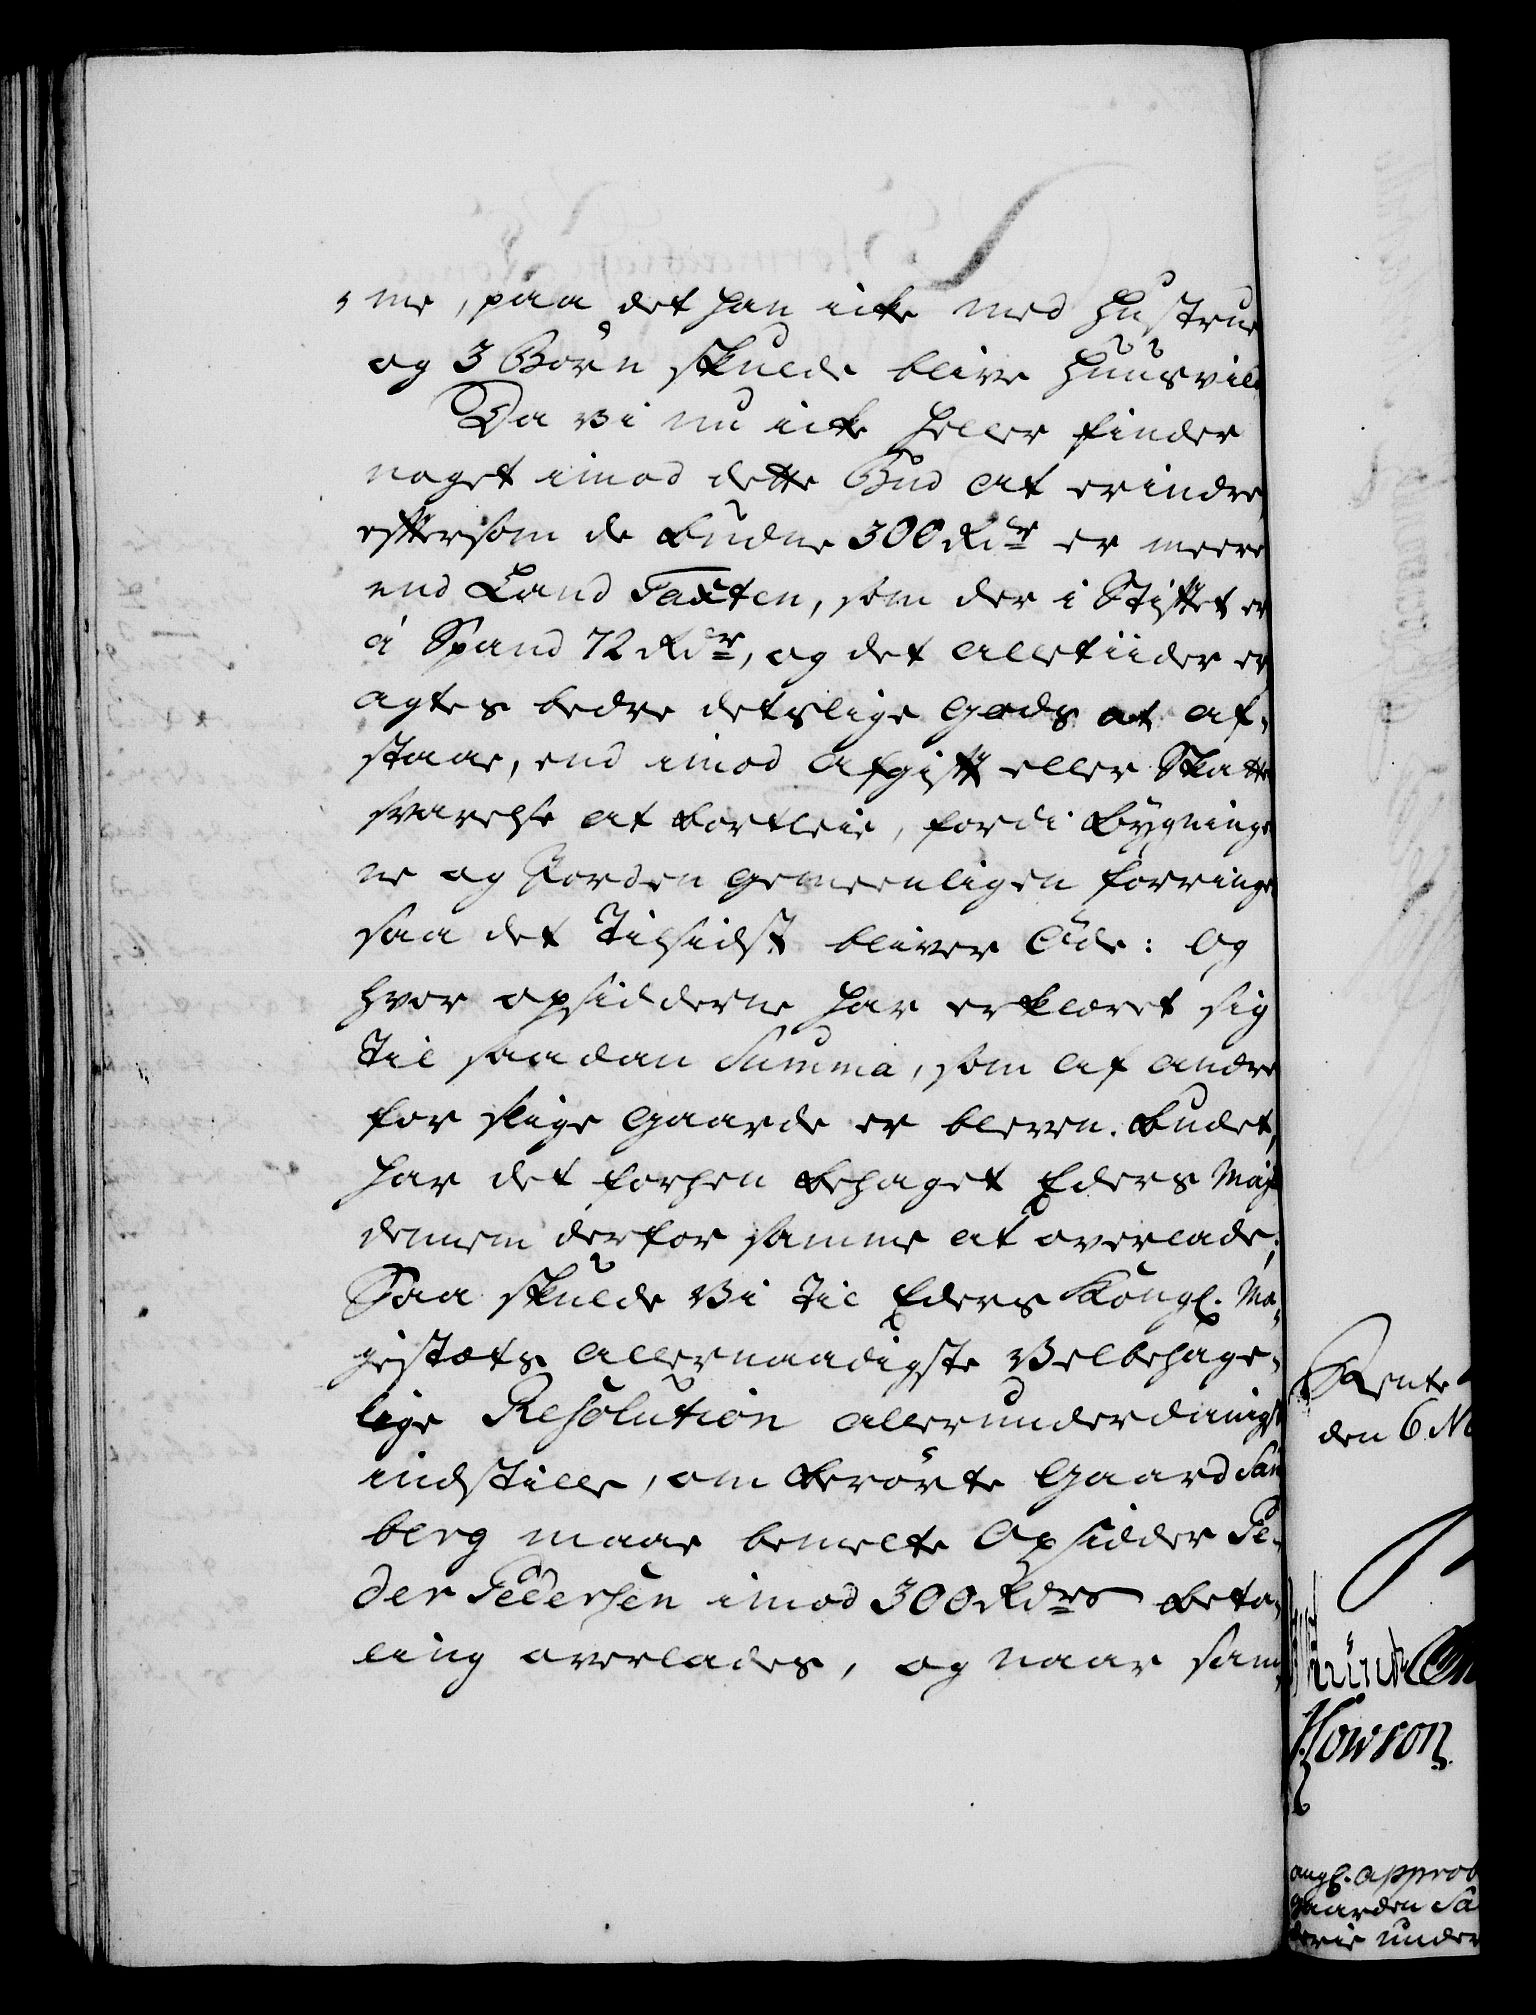 me, paa det han icke med Hustrue
og 3 Børn skulde blive Huusvild
Da Vi nu icke heller finder
noget imod dette Bud at erindre,
eftersom de budne 300 Rdr er meere
end Land Taxten, som der i Stiftet er
á Spand 72 Rdr, og det alletiider er
agtes bedre detslige Gods at af-
staae, end imod Afgift eller Skatte
svarelse at bortleie, fordi Bygninge
ne og Jorden gemeenligen forringes
saa det Tilsidst bliver Øde: Og
hvor opsidderne har erklæret sig
til saadan Summa, som af andre
for slige Gaarde er bleven budet,
har det forhen behaget Eders Mayst
dennem derfor samme at overlade;
Saa skulde Vi til Eders Kongl. Ma-
gestæts allernaadigste Velbehage-
lige Resolution allerunderdanigst
indstille, om berørte Gaard San
berg maae bemelte Opsidder Pe-
der Pedersen imod 300 Rdrs beta-
ling overlades, og naar sam-
Rente
den 6 N
Howson
ongl. approb
gaarden Sa
under